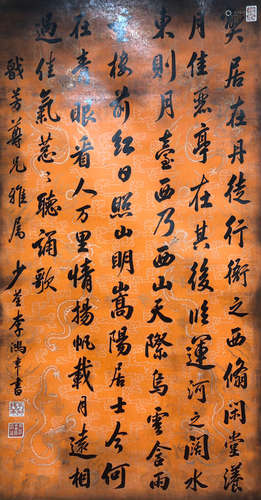 弊居在丹徒行衙之西脩閑堂漾
月佳麗亭在其後臨運河之闊水
東則月臺西乃西山天際烏雲含雨
重樓前紅日照山明嵩陽居士今何
在青眼看人万里情揚帆載月遠相
過佳氣葱〻聽誦歌
芳尊兄雅属 少荃李鴻章書